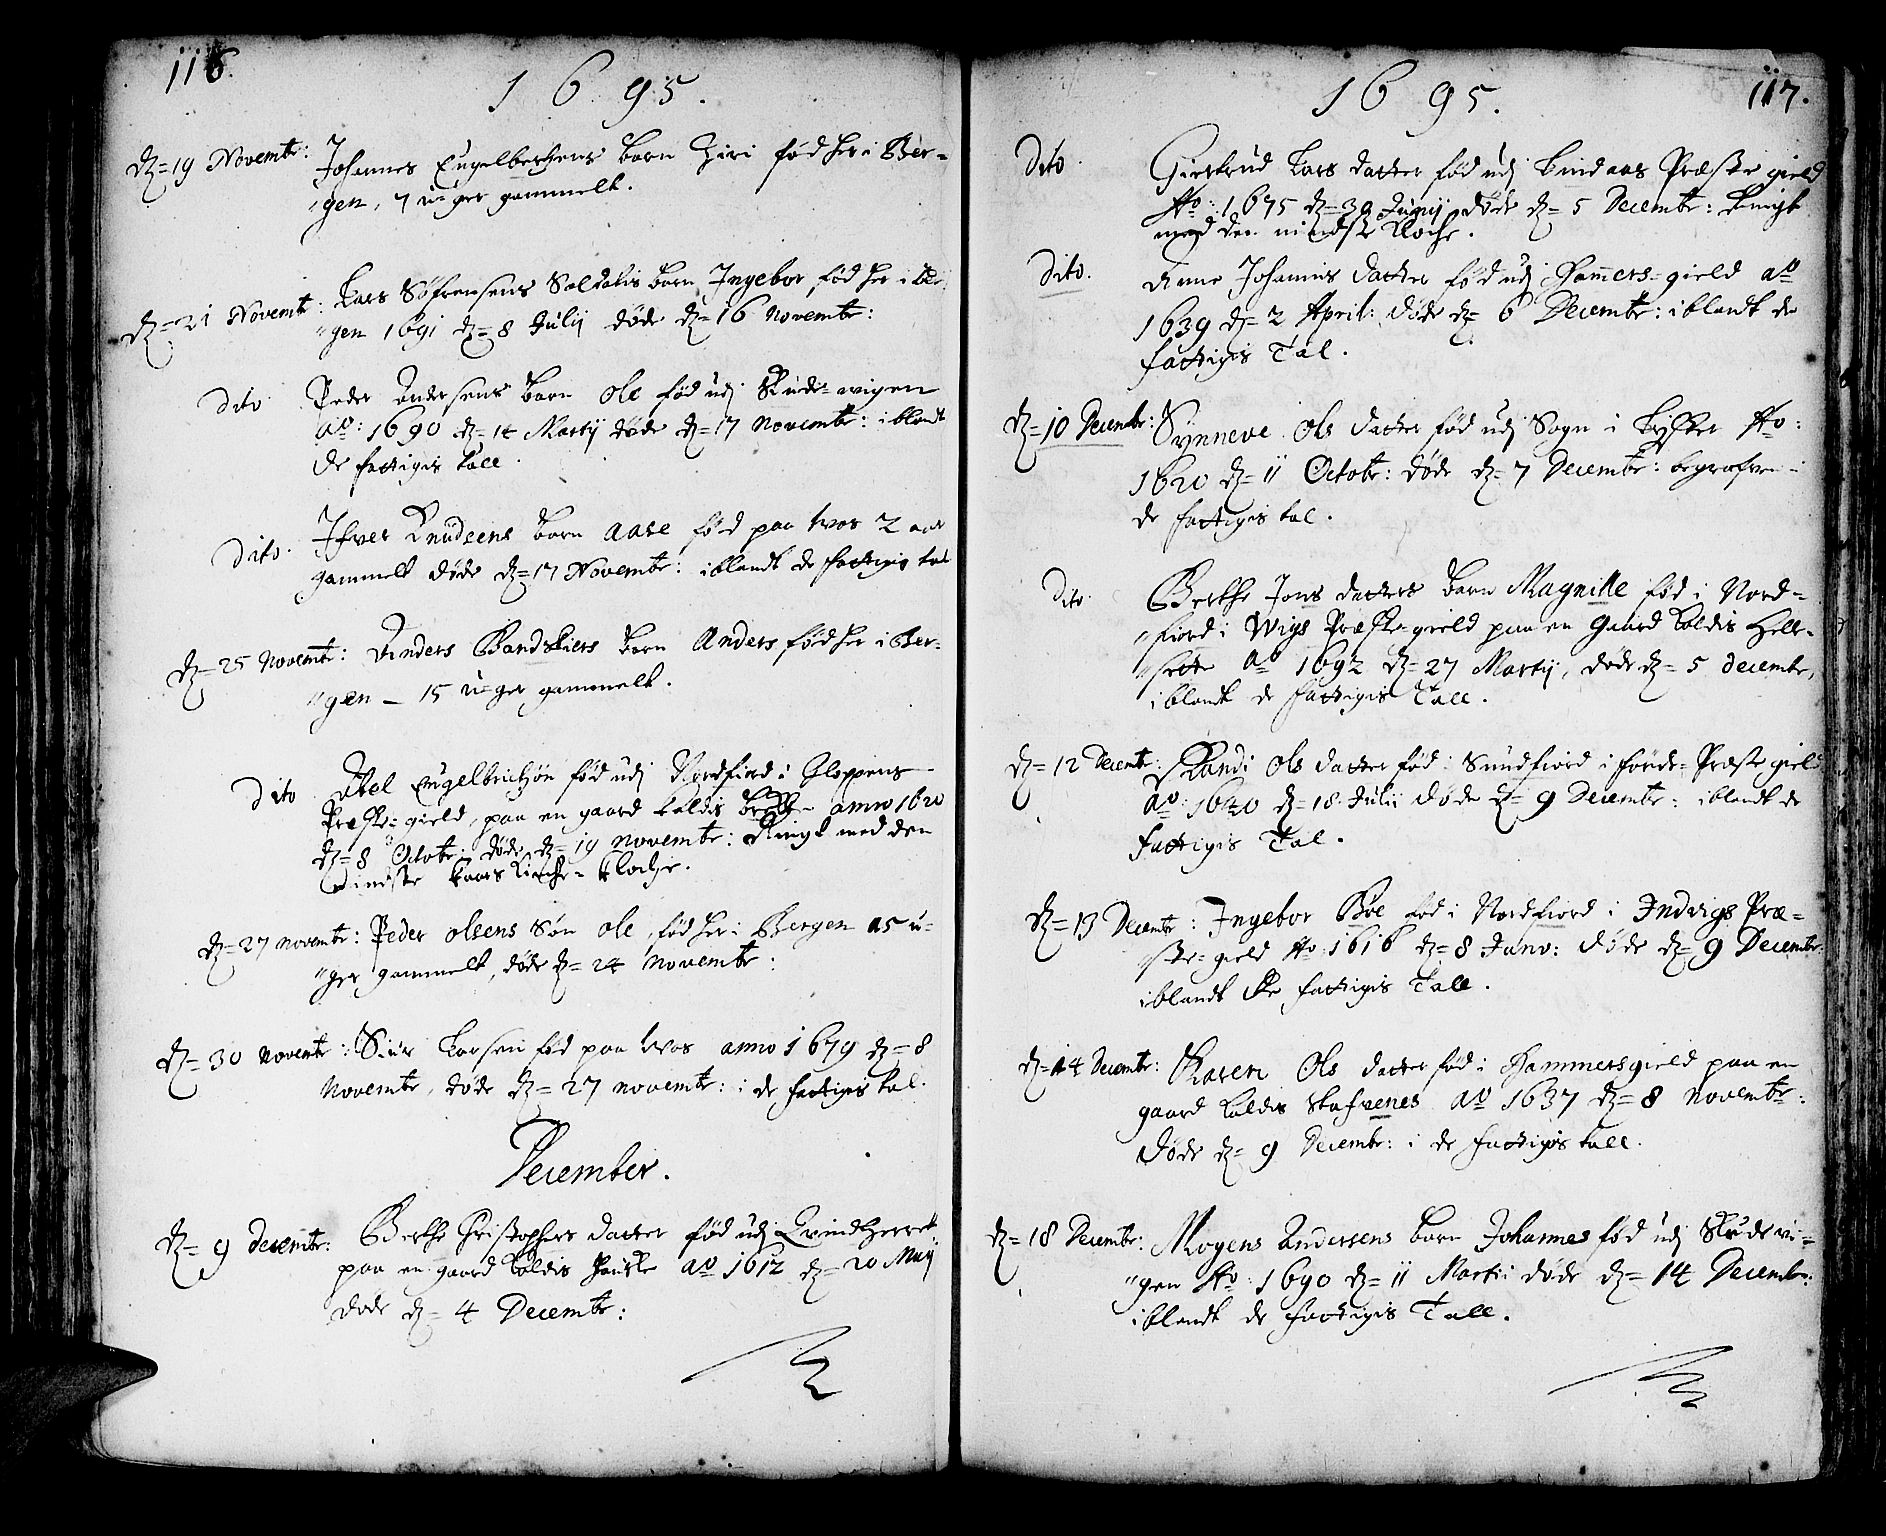 116.
1695.
dz= 19 Novembr: Johannes Engelbretzens barn Giri fød her i Ber=
"gen, 7 uger gammelt.
dz= 21 Novembr: Lars Søfrensens Soldatis barn Ingebor, fød her i Ber
"gen 1691 dz= 8 Julij døde dz= 16 Novembr:
Dito. Peder Andersens barn Ole fød udj Skude=wigen
ao: 1690 dz= 14 Martij døde dz= 17 Novembr: iblandt
de fattigis tall.
Dito. Ifver Knudsens barn Aase fød paa Wos 2 aar
gammelt døde dz= 17 Novembr: iblandt de fattigis tal
dz= 25 Novembr: Anders Bandskiers barn Anders fød her i Ber=
"gen – 15 uger gammelt.
Dito Abel Engelbrichtzøn fød udj Nordfiord i Gloppens
Præste=gield, paa en gaard kaldis anno 1620
dz= 8 Octobr: døde dz= 19 Novembr: Ringt med den
mindste Kaars Kirche=Klochje.
dz= 27 Novembr: Peder Olsens Søn Ole, fød her i Bergen 15 u=
"ger gammelt, døde dz= 24 Novembr:
dz= 30 Novembr: Siur Larsen fød paa Wos anno 1679 dz= 8
Novembr, døde dz= 27 Novembr: i de fattigis tal.
December.
dz= 9 Decembr: Berthe Christophers datter fød udj Qvindherret
paa en gaard kaldis ao 1612 dz= 20 Maij
døde dz= 4 Decembr:
117.
1695.
Dito. Giertrud Lars datter fød udj Lindaas Præste gield
Ao: 1675 dz= 30 Junij døde dz= 5 Decembr: Ringt
med den mindste Kloche.
Dito. Anne Johannis datter fød udj Hammers=gield ao
1639 dz= 2 April: døde dz= 6 Decembr: iblandt de
fattigis Tal.
dz= 10 Decembr: Synneve Ols datter fød udj Sogn i Lyster Ao:
1620 dz= 11 Octobr: døde dz= 7 Decembr: begrafven i
de fattigis tal.
Dito. Berthe Jons datters barn Magnille fød i Nord=
"fiord i Wigs Præste=gield paa en Gaard kaldis Helle=
"sette Ao 1692 dz= 27 Martij, døde dz= 5 Decembr,
iblandt de fattigis Tall.
dz= 12 Decembr: Randi Ols datter fød i Sundfiord i Førde=Præste gield
Ao: 1640 dz= 18 Julij døde dz= 9 Decembr: iblandt de
fattigis Tal.
dz= 13 Decembr: Ingebor Boe fød i Nordfiord i Indvigs Præ=
"ste=gield Ao: 1616 dz= 8 Janv: døde dz= 9 Decembr
iblandt de fattigis Tall.
dz= 14 Decembr: Karen Ols datter fød i Hammersgield paa en
gaard kaldis Skafvenes Ao 1637 dz= 8 Novembr:
døde dz= 9 Decembr: i de fattigis tall.
dz= 18 Decembr: Mogens Andersens barn Johannes fød udj Skudevi=
"gen Ao: 1690 dz= 11 Marti: døde dz= 14 Decembr:
iblandt de fattigis Tall.